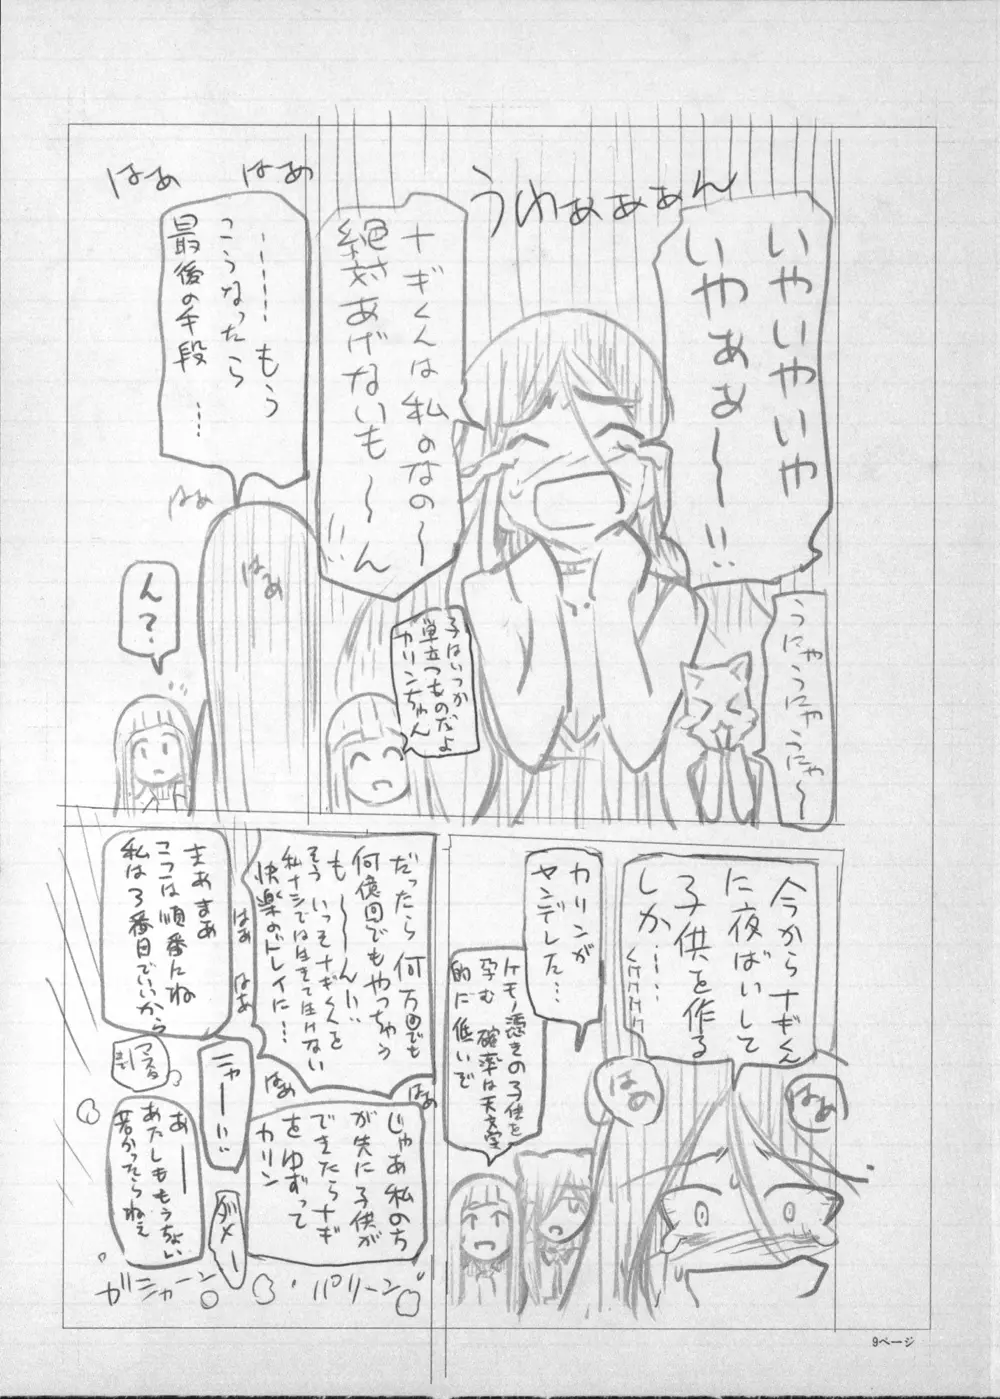 いやいやいや
いやぁぁ〜!!
うわぁぁぁぁん
うにゃうにゃうにゃ〜
ナギくんは私のなの〜
絶対あげないも〜ん!!
子はいつか
巣立つものだよ
カリンちゃん
はぁ
はぁ
……もう
こうなったら
最後の手段…
はぁ
はぁ
ん?
今からナギくん
に夜ばいして
子供を作る
しか……くけけけ
はぁ
はぁ
カリンが
ヤンデレした…
ケモノ憑きの子供を
孕む確率は天文学
的に低いで
だったら何万回でも
何億回でもやっちゃう
も〜〜ん!!
そういっそナギくんを
私ナシでは生きて生けない
快楽のドレイに…
はぁ
はぁ
はぁ
はぁ
じゃあ私の方
が先に子供が
できたらナギ
をゆずって
カリン
まあまあ
ここは順番にね
私は3番目でいいから
ニャーー!!
ダメー
あー
あたしももうちょい
若かったらねぇ
パリーン
ガシャーン
9ページ